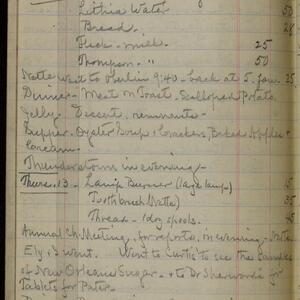 Lithia Water 50
Bread 28
Fleck - milk - 25
Thompson - " 50
Nette went to Oberlin 9:40 - back at 5. fare 25
Dinner - Meat on Toast - Scalloped Potato
Jelly - Dessert, remnants -
Supper - Oyster Soup & Crackers, Baked Apples &
Cream -
Thunderstorms in evening -
Thurs. 13 - Lamp Burner (large lamp) 15
Toothbrush (Nette) 35
Thread - 1 doz spools 45
Annual Ch. Meeting, for reports, in evening - Nette
Ely & I went. Went to Curtis' to see the samples
of New Orleans Sugar - & to Dr Sherwood's for
Tablets for Pater.